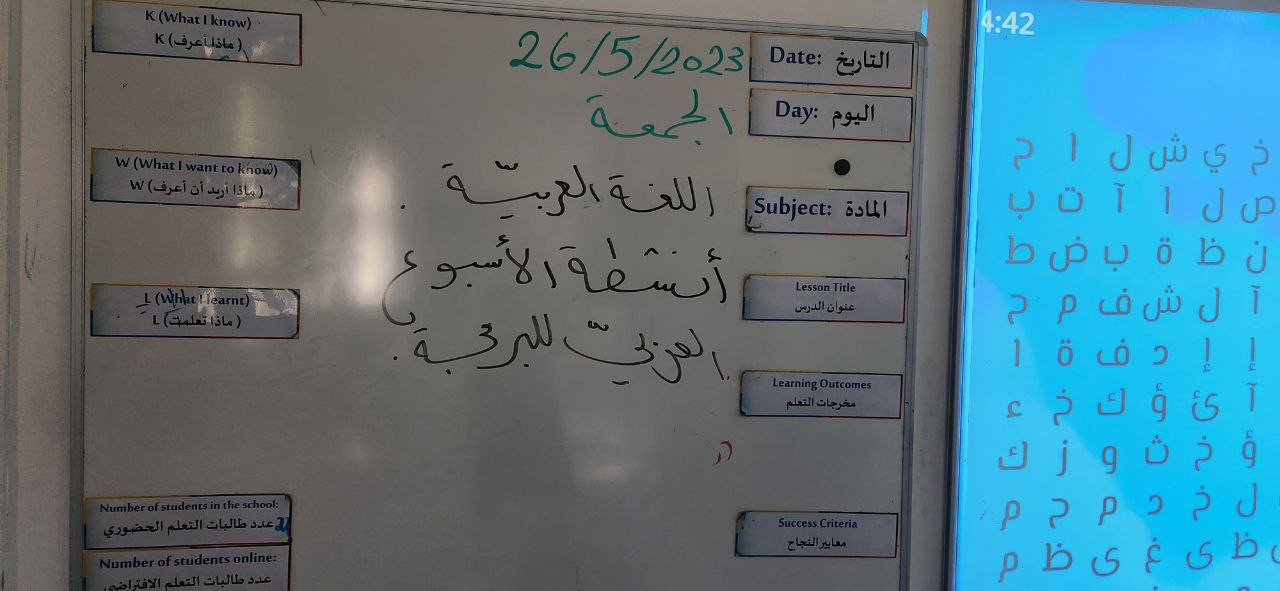 K (What I know)
K (ماذا أعرف)
26/5/2023
Date: التاريخ
الجمعة
Day: اليوم
W (What I want to know)
W (ماذا أريد أن أعرف)
اللغة العربيّة.
Subject: المادة
أنشطة الأسبوع
Lesson Title
عنوان الدرس
L (What I learnt)
L (ماذا تعلمت)
العربيّ للبرمجة.
Learning Outcomes
مخرجات التعلم
Number of students in the school:
عدد طالبات التعلم الحضوري
Success Criteria
معايير النجاح
Number of students online:
عدد طالبات التعلم الافتراضي
4:42
خ ي ش ل ا ح
ص ل ا آ ت ب
ن ظ ة ب ض ط
آ ل ش ف م ح
إ إ د ف ة ا
آ ئ ؤ ك خ ء
ؤ خ ث و ز ك
ل خ د م ح م
ظ ى غ ى ظ م